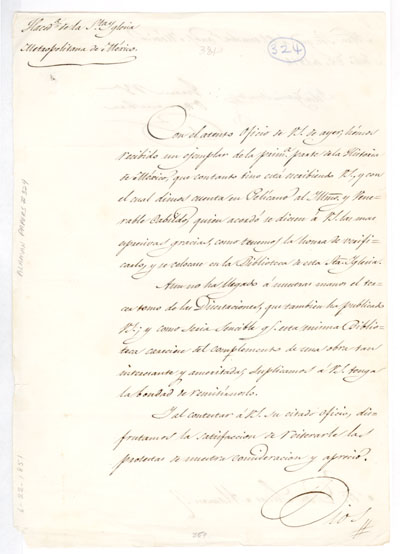 Haced.ª de la S.ta Iglesia
Metropolitana de México.
324
Con el atento oficio de V.S. de ayer, hemos
recibido un ejemplar de la prim.ª parte de la Historia
de México, que con tanto tino está escribiendo V.S., y con
el cual dimos cuenta en Pelícano al Illmo. y Vene-
rable Cabildo, quien acordó se diesen á V.S. las mas
espresivas gracias, como tenemos la honra de verifi-
carlo, y se colocase en la Biblioteca de esta Sta. Iglesia.
Aun no ha llegado á nuestras manos el ter-
cer tomo de las Disertaciones, que tambien ha publicado
V.S.; y como sería sensible q.e esta misma Biblio-
teca careciese del complemento de una obra tan
interesante y ameritada, suplicamos á V.S. tenga
la bondad de remitírnoslo.
Y al contestar á V.S. su citado oficio, dis-
frutamos la satisfaccion de reiterarle las
protestas de nuestra consideracion y aprecio.
Dios
ALAMAN PAPERS # 324
1851